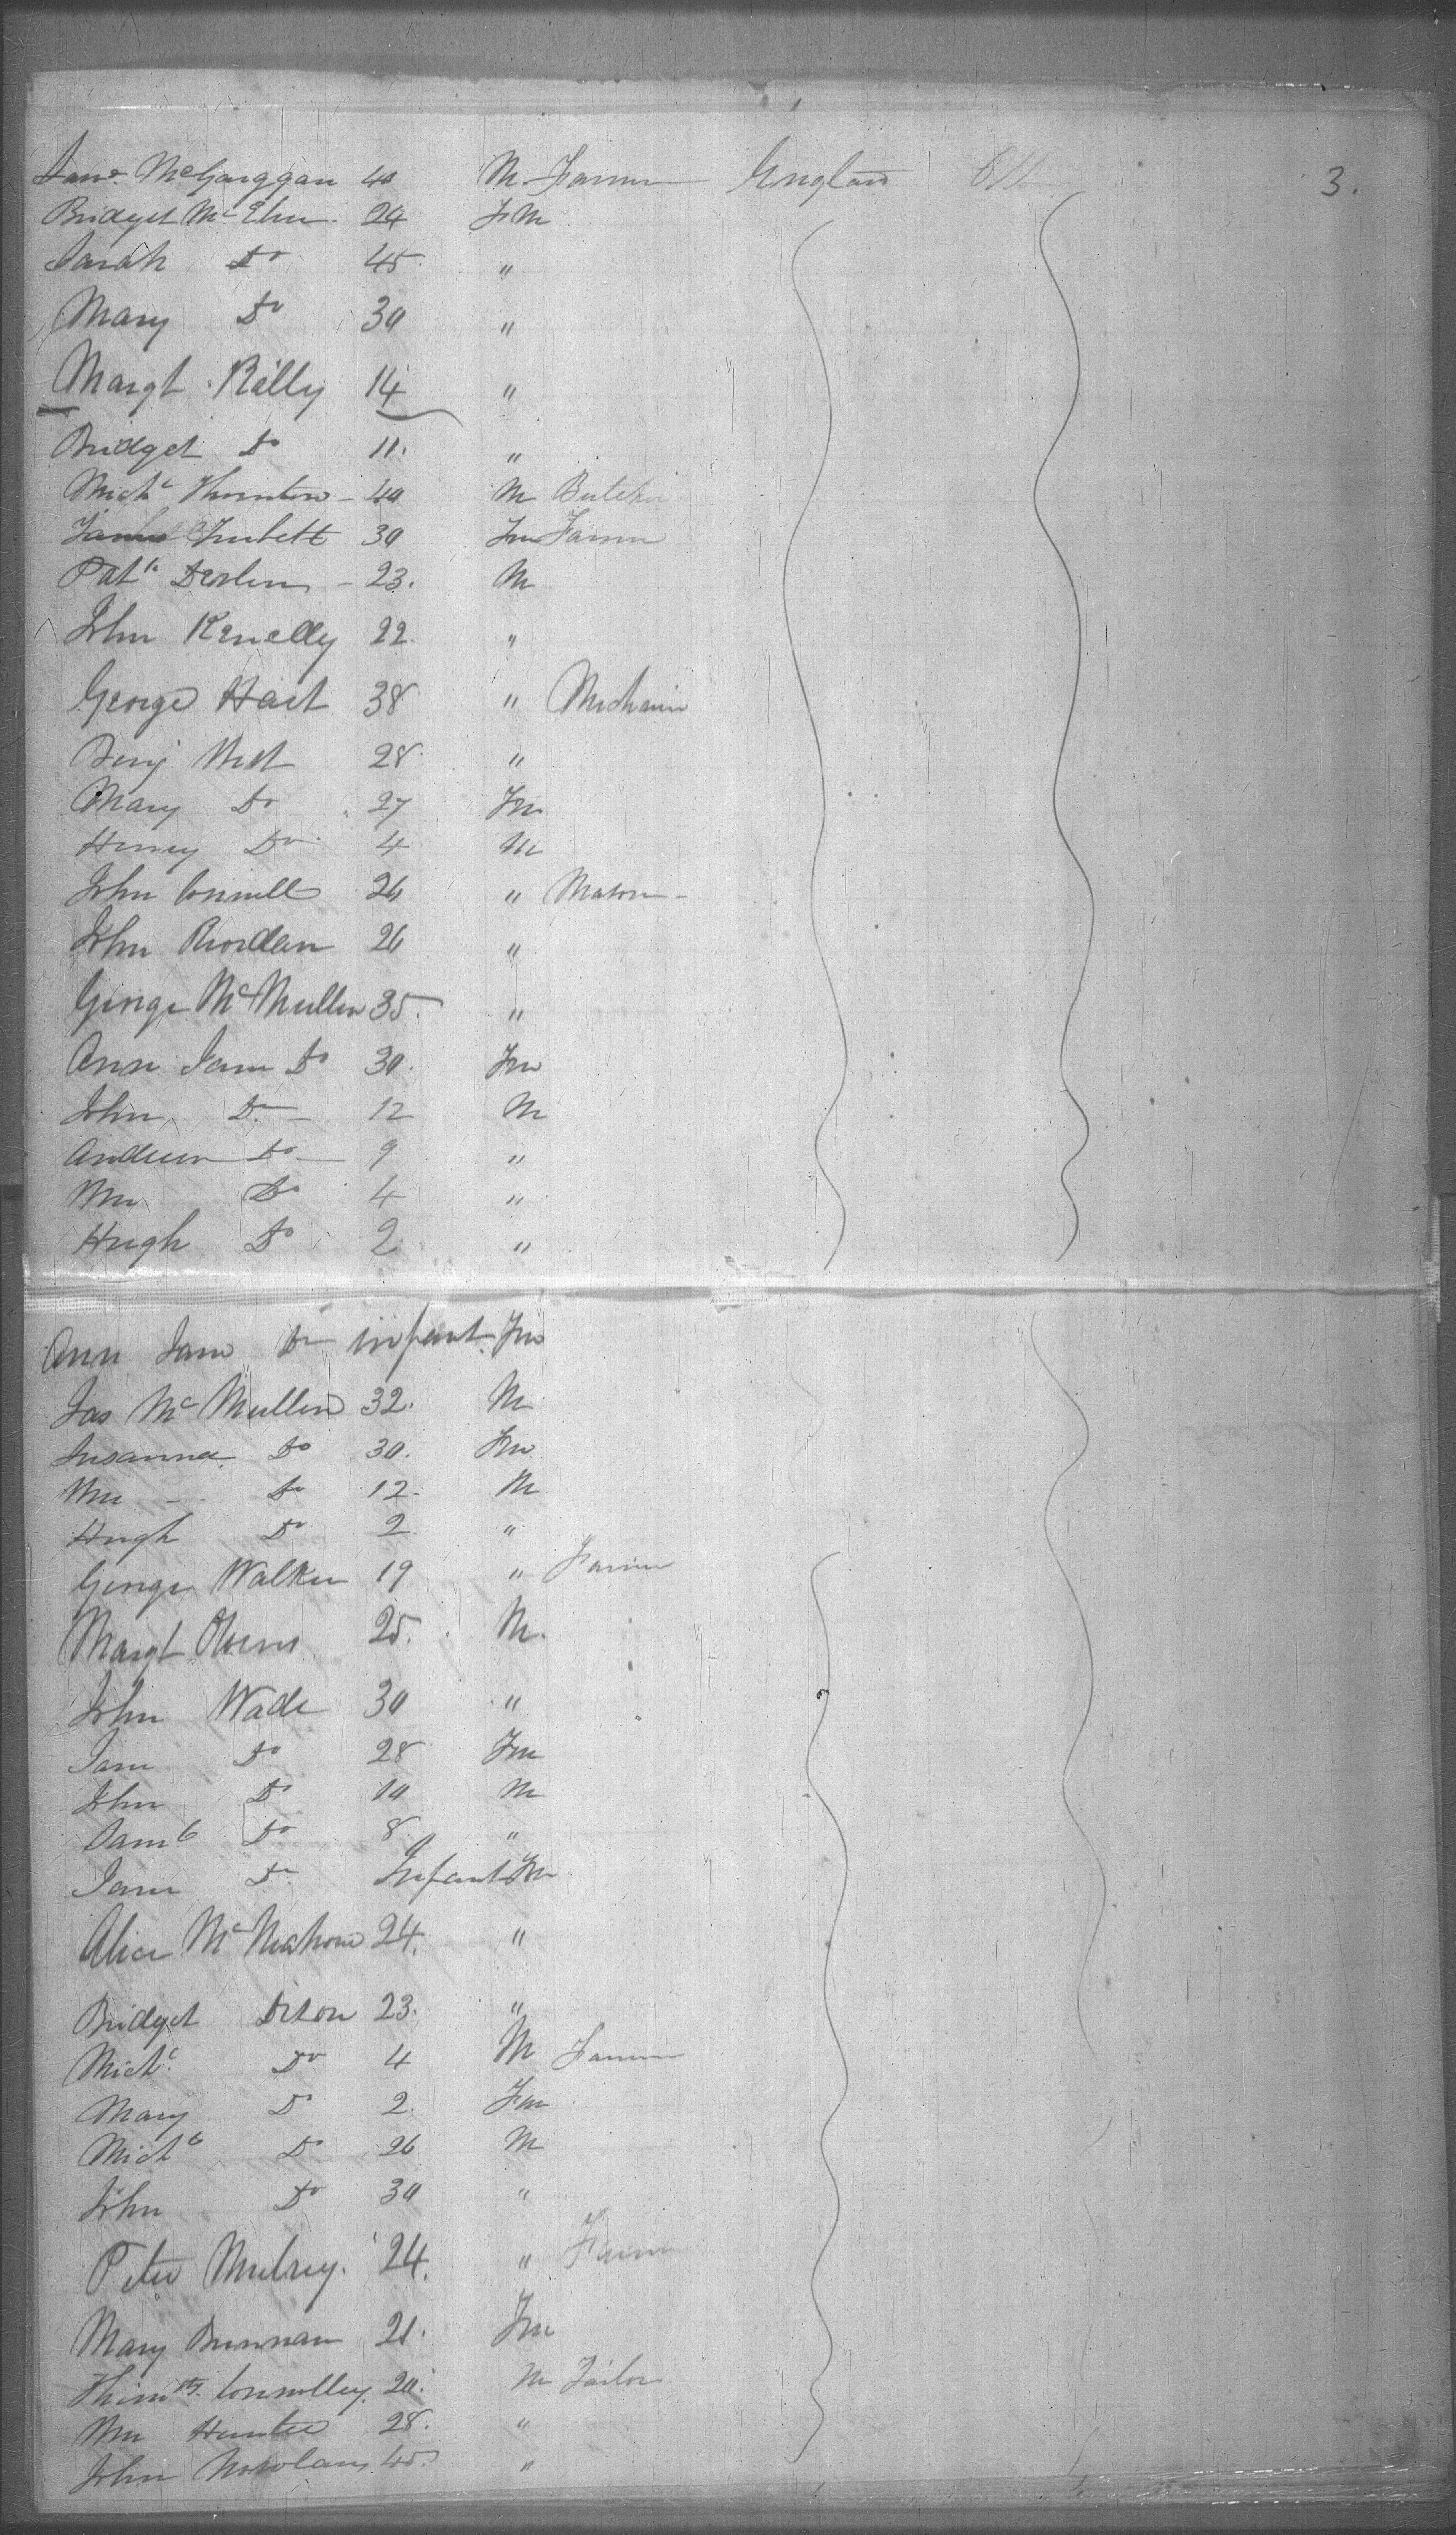 McGarggan 40 M. Farmer England 3.
Bridget McElm 24 Fm
Sarah Do 45 "
Mary Do 30 "
Margt Rilly 14 "
Bridget Do 11. "
Michl Thornton - 40 M Butcher
30 Fm Farmer
Patk Devlin - 23. M
John Kenelly 22. "
George Hart 38 " Mechanic
Benj West 28 "
Mary Do 27 Fm
Henry Do 4 M
John Connell 26 " Mason -
John Riordan 26 "
George McMullen 35. "
Ann Jane Do 30. Fm
John Do - 12 M
Andrew Do 9 "
Wm Do 4 "
Hugh Do 2 "
Ann Jane Do infant. Fm
Jas McMullen 32. M
Susanna Do 30. Fm
Wm - Do 12. M
Hugh Do 2. "
George Walker 19 " Farmer
Margt Owens 25. M.
John Wade 30 "
Jane Do 28 Fm
John Do 10 M
Saml Do 8. "
Jane Do Infant Fm
Alice McMahon 24. "
Bridget Dixon 23. "
Michl Do 4 M Farmer
Mary Do 2. Fm
Michl Do 26 M
John Do 30 "
Peter Mulvey. 24. " Farmer
Mary Brennan 21. Fm
Thimoty. Connolley. 20. M Tailor
Wm Hunter 28. "
John 45. "